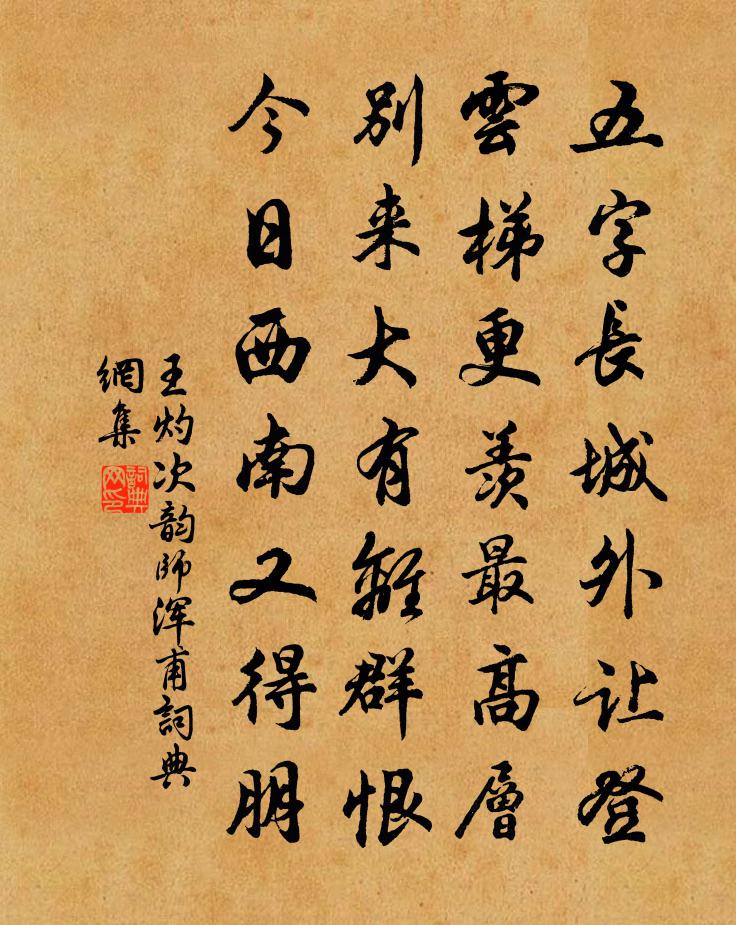 五字長城外让登
雲梯更羨最高層
別来大有離群恨
今日西南又得朋
王灼次韵師浑甫詞典
網集
詞典网印